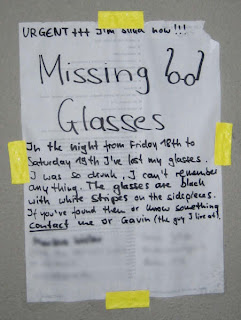 URGENT +++ I'm blind now !!!
Missing
Glasses
In the night from Friday 18th to
Saturday 19th I've lost my glasses.
I was so drunk, I can't remember
anything. The glasses are black
with white stripes on the sidepieces.
If you've found them or know something
contact me or Gavin (the guy I live at).